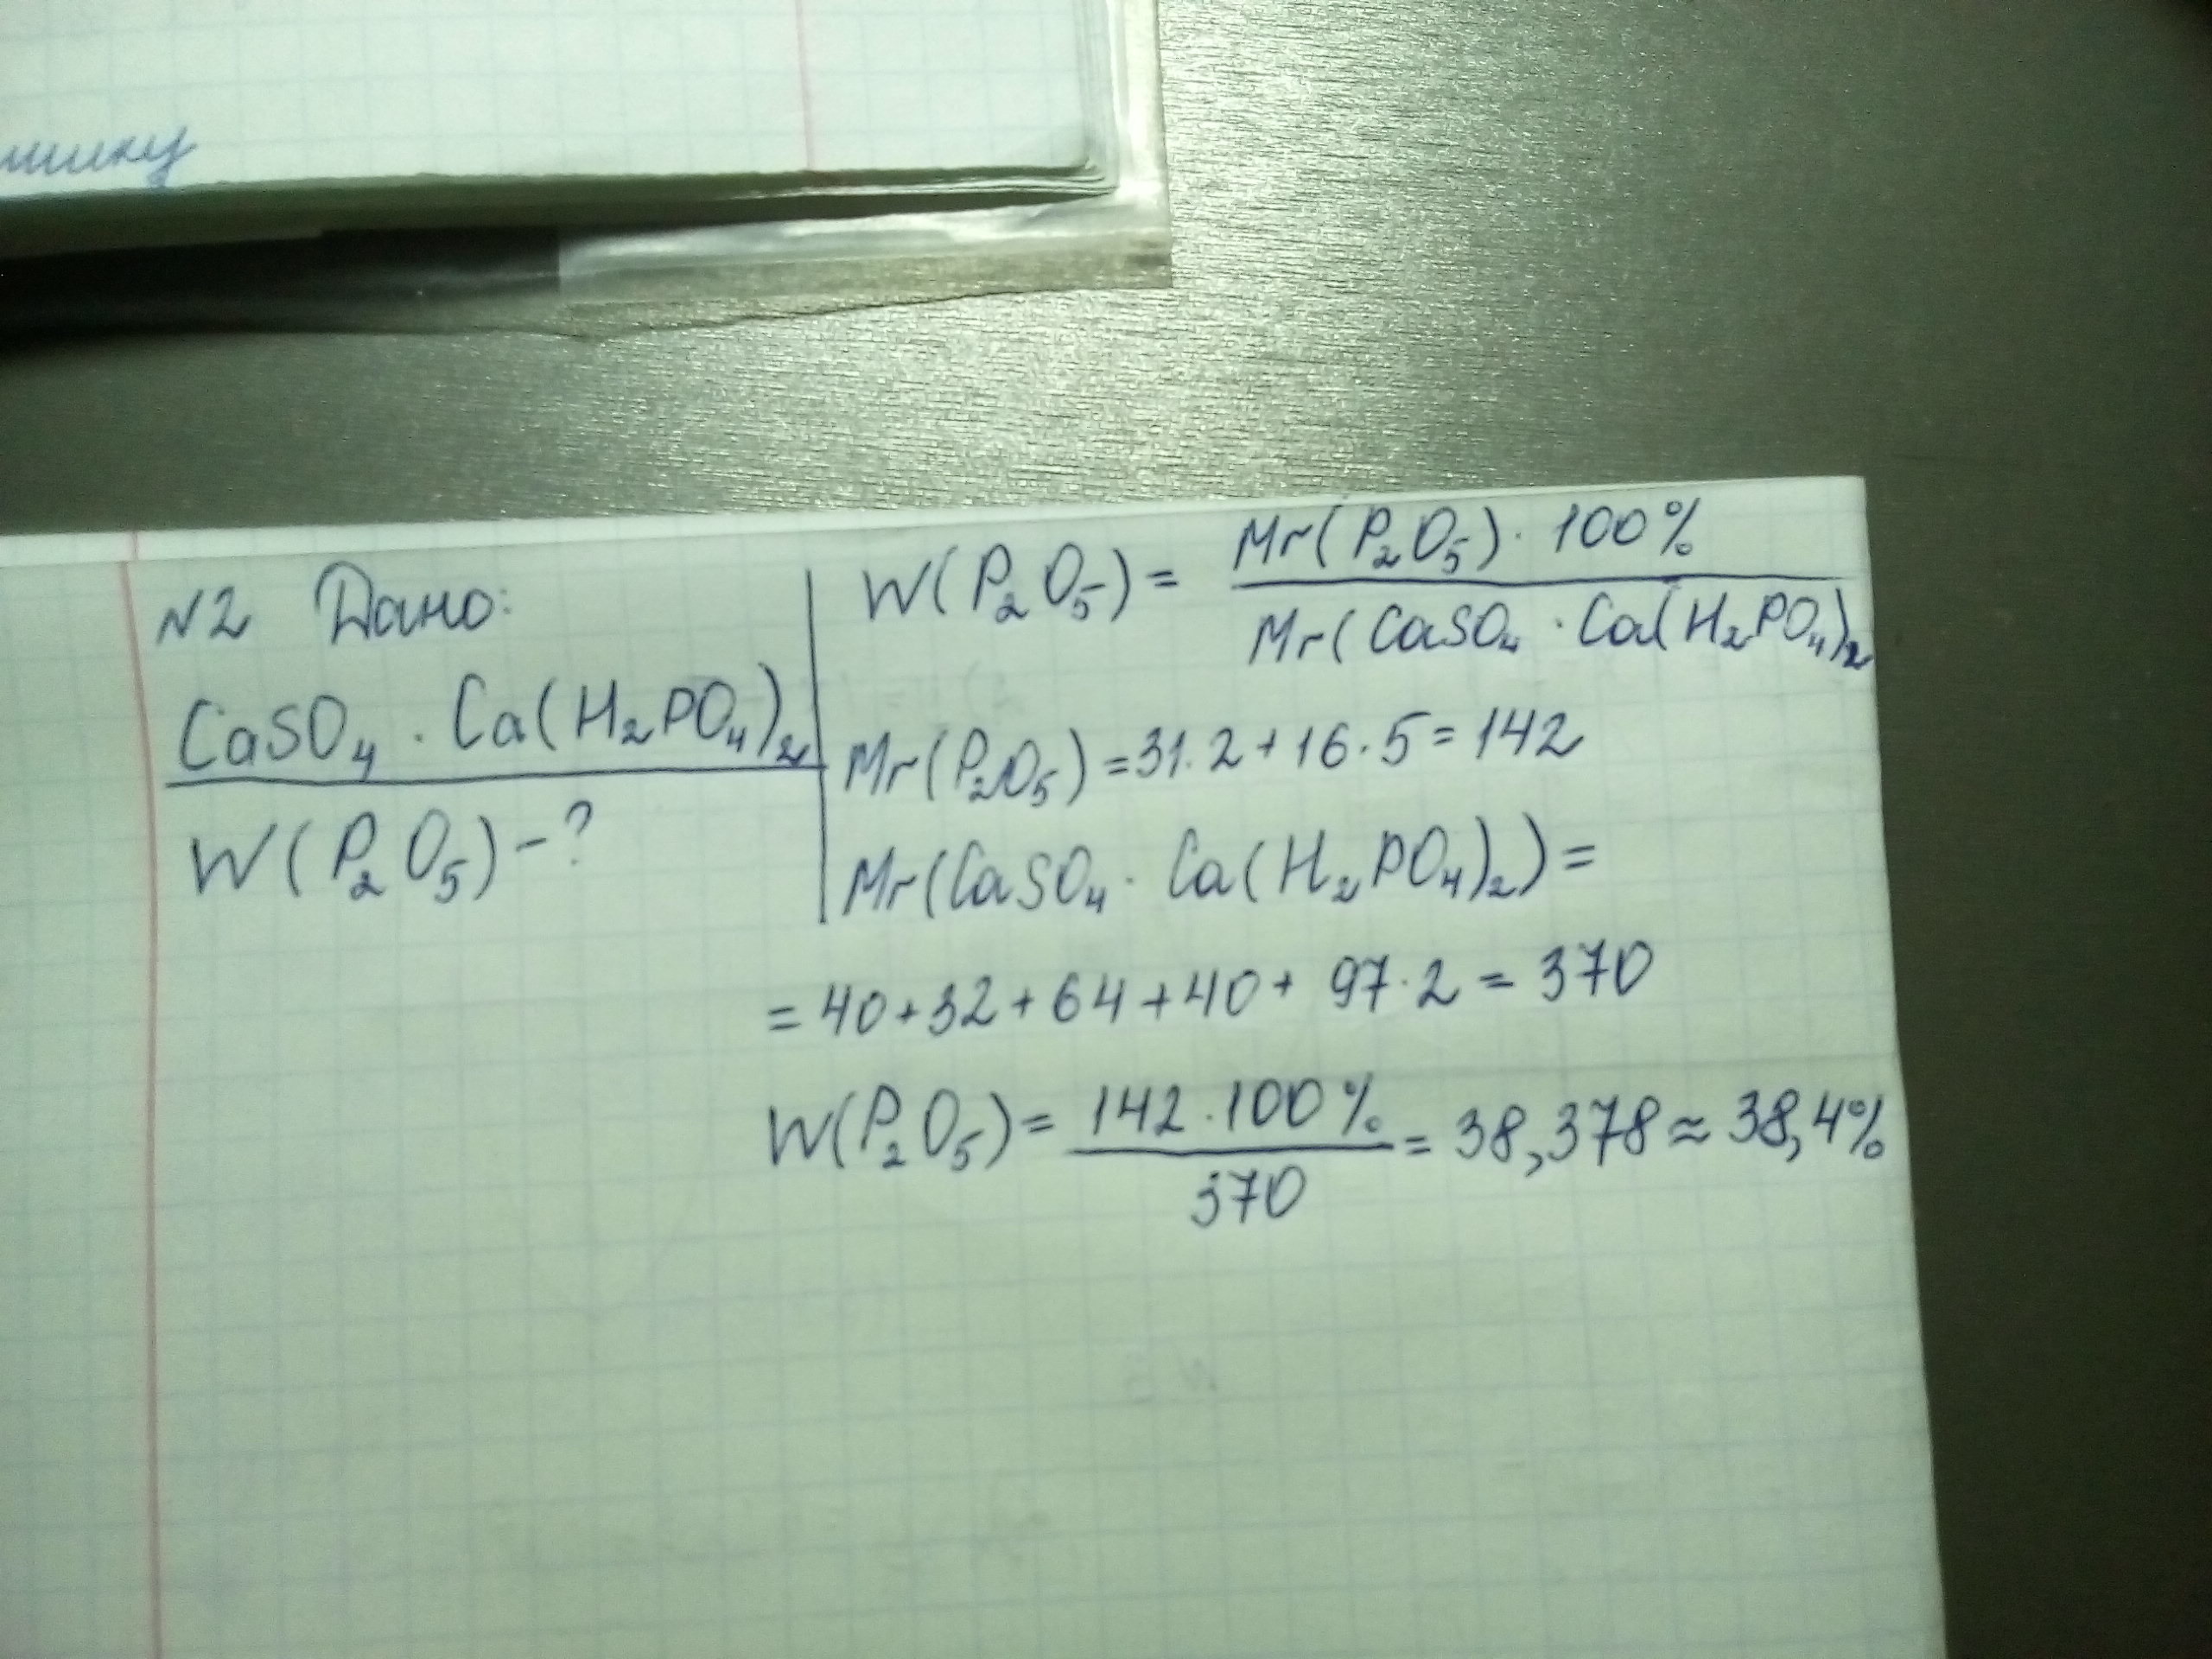 N2 Дано:
CaSO₄ · Ca(H₂PO₄)₂
W(P₂O₅) - ?
W(P₂O₅) = Mr(P₂O₅) · 100%
Mr(CaSO₄ · Ca(H₂PO₄)₂
Mr(P₂O₅) = 31·2 + 16·5 = 142
Mr(CaSO₄ · Ca(H₂PO₄)₂) =
= 40 + 32 + 64 + 40 + 97·2 = 370
W(P₂O₅) = 142 · 100% = 38,378 ≈ 38,4%
370